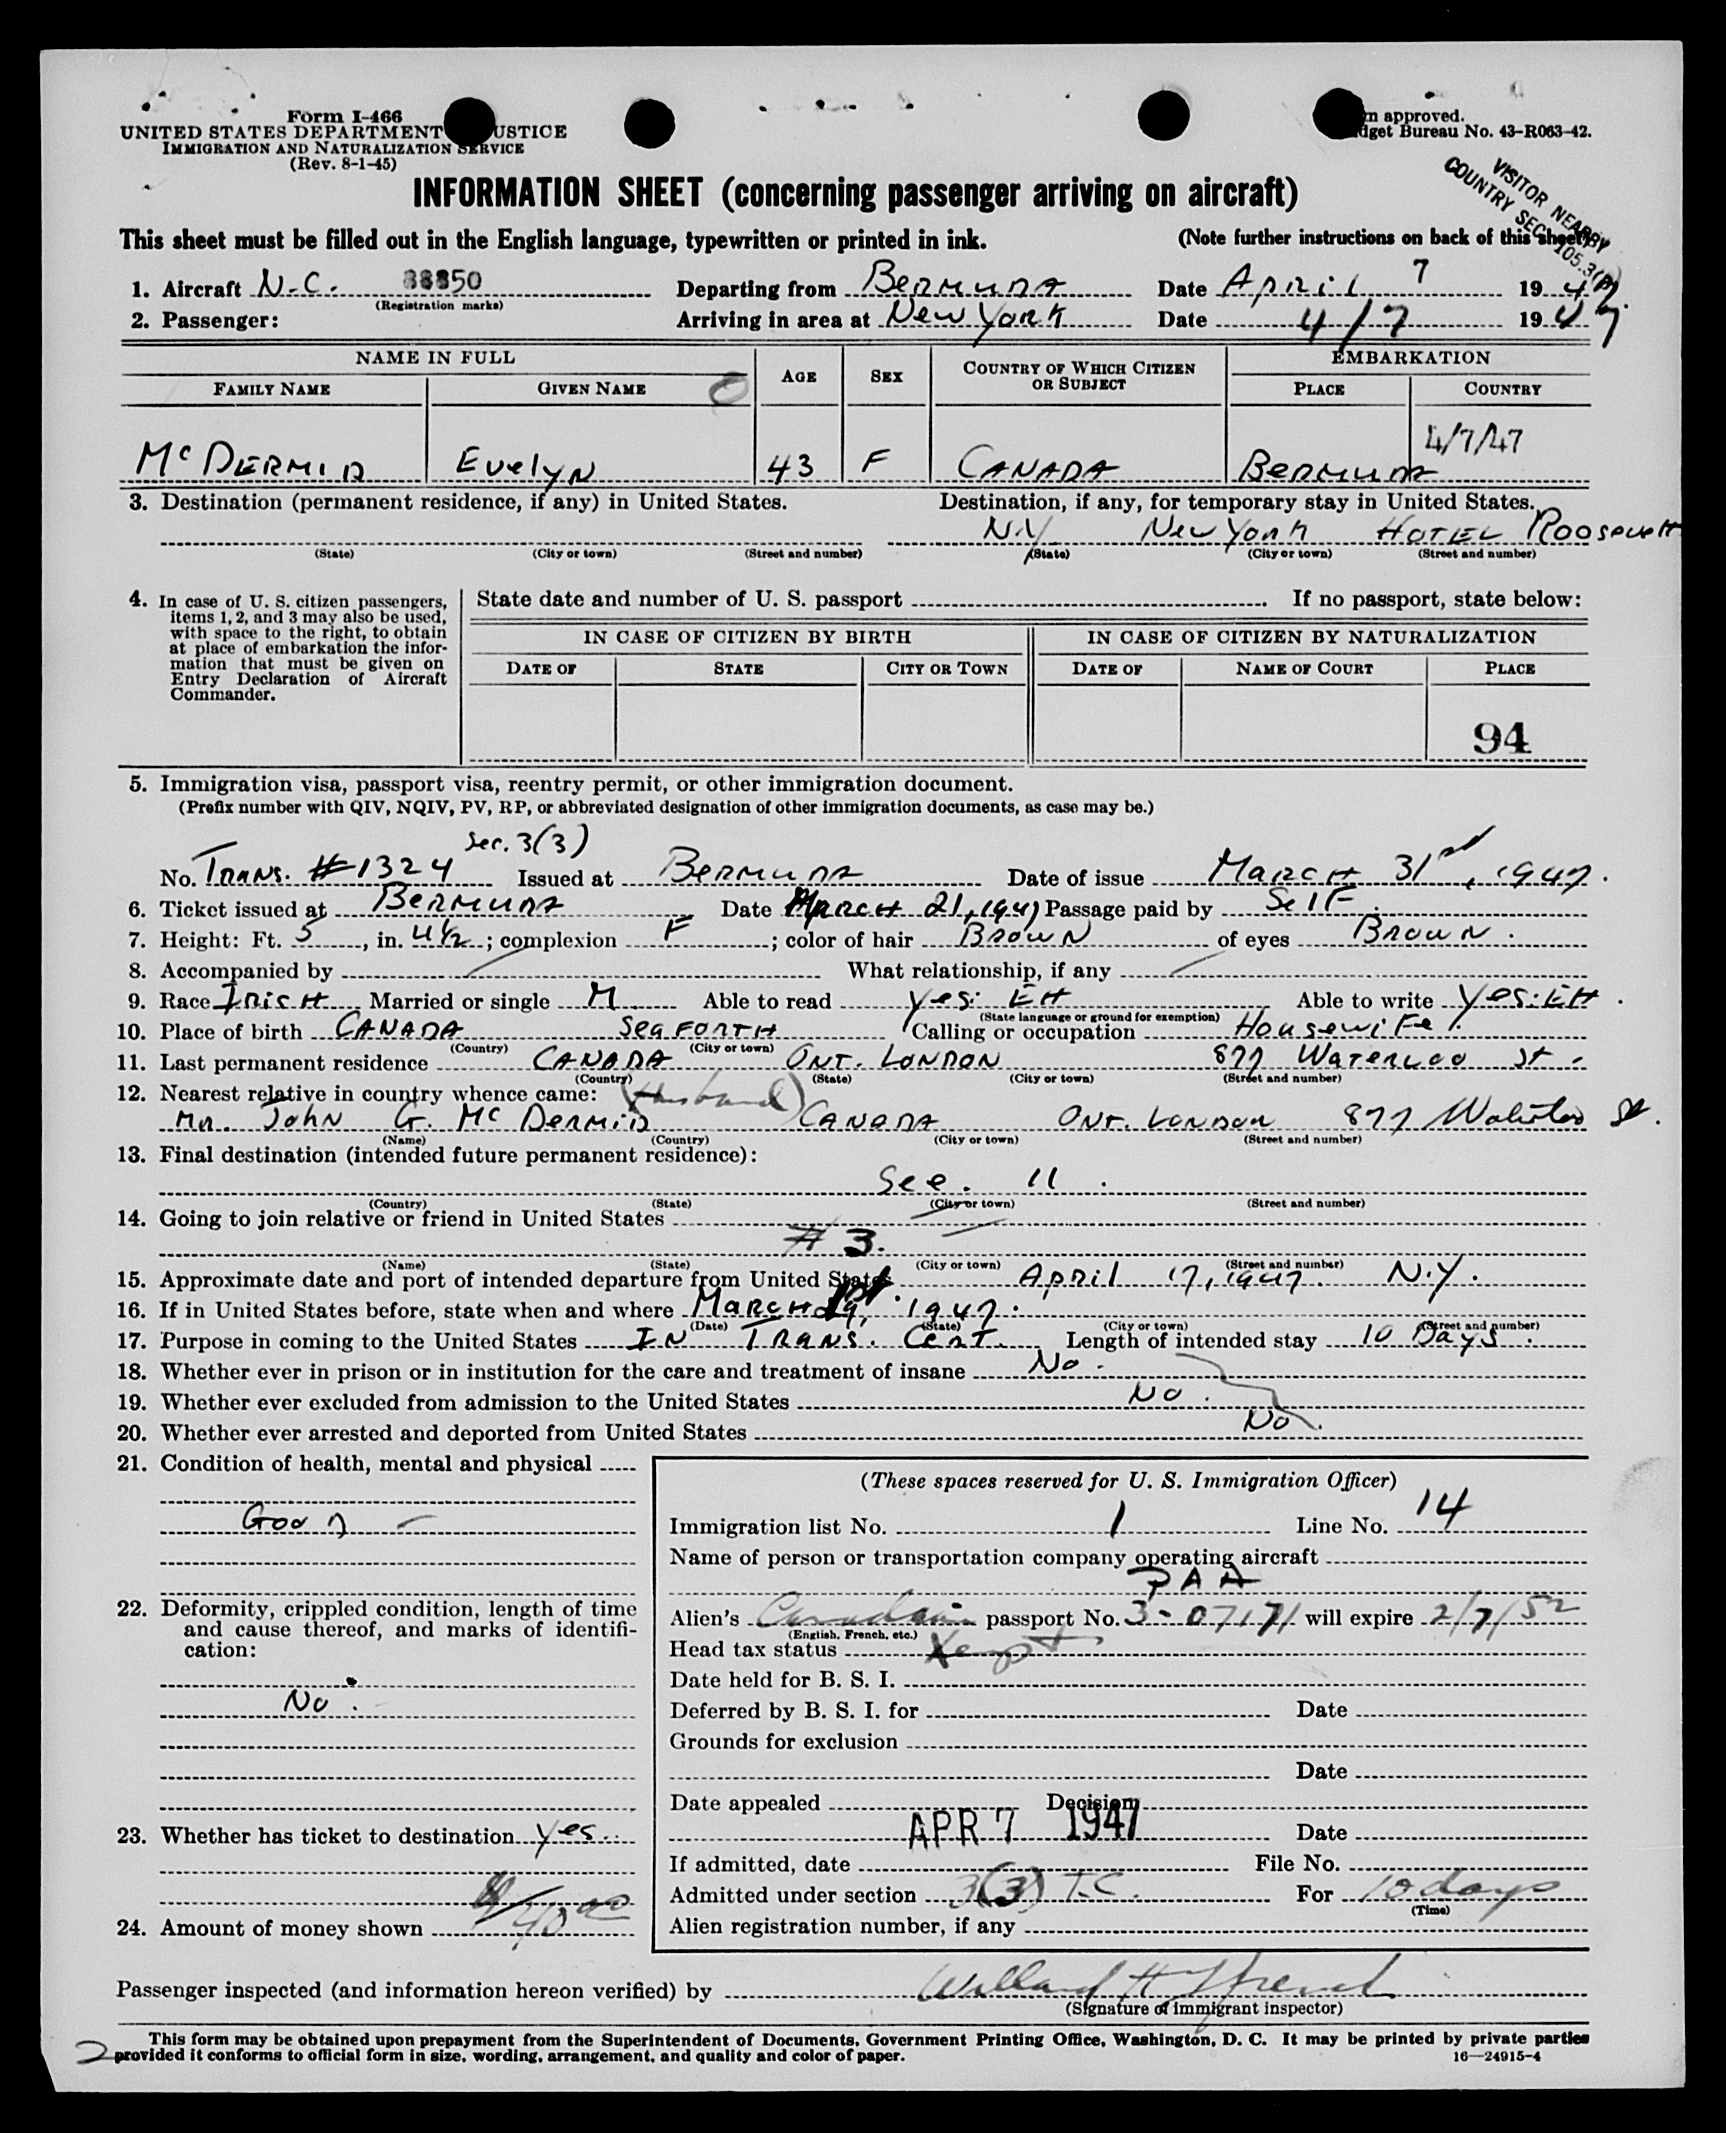 Form I-466
UNITED STATES DEPARTMENT USTICE
IMMIGRATION AND NATURALIZATION SERVICE
(Rev. 8-1-45)
n approved.
dget Bureau No. 43-R063-42.
VISITOR NEARBY
COUNTRY SEC. 105.3(A)
INFORMATION SHEET (concerning passenger arriving on aircraft)
This sheet must be filled out in the English language, typewritten or printed in ink. (Note further instructions on back of this sheet)
1. Aircraft N.C. 88850 Departing from BERMUDA Date April 7 1947.
(Registration marks)
2. Passenger: Arriving in area at New York Date 4/7 1947
NAME IN FULL AGE SEX COUNTRY OF WHICH CITIZEN OR SUBJECT EMBARKATION
FAMILY NAME GIVEN NAME PLACE COUNTRY
4/7/47
McDERMID Evelyn 43 F CANADA BERMUDA
3. Destination (permanent residence, if any) in United States. Destination, if any, for temporary stay in United States.
N.Y. New York HOTEL Roosevelt
(State) (City or town) (Street and number) (State) (City or town) (Street and number)
4. In case of U. S. citizen passengers, items 1, 2, and 3 may also be used, with space to the right, to obtain at place of embarkation the information that must be given on Entry Declaration of Aircraft Commander.
State date and number of U. S. passport If no passport, state below:
IN CASE OF CITIZEN BY BIRTH IN CASE OF CITIZEN BY NATURALIZATION
DATE OF STATE CITY OR TOWN DATE OF NAME OF COURT PLACE
94
5. Immigration visa, passport visa, reentry permit, or other immigration document.
(Prefix number with QIV, NQIV, PV, RP, or abbreviated designation of other immigration documents, as case may be.)
Sec. 3(3)
No. Trans. #1324 Issued at BERMUDA Date of issue MARCH 31st, 1947.
6. Ticket issued at BERMUDA Date MARCH 21, 1947 Passage paid by Self.
7. Height: Ft. 5, in. 4½; complexion F; color of hair Brown of eyes Brown.
8. Accompanied by What relationship, if any
9. Race Irish Married or single M Able to read Yes: EH Able to write Yes: EH.
(State language or ground for exemption)
10. Place of birth CANADA SEAFORTH Calling or occupation Housewife.
(Country) (City or town)
11. Last permanent residence CANADA ONT. LONDON 877 Waterloo St.
(Country) (State) (City or town) (Street and number)
12. Nearest relative in country whence came: (Husband)
Mr. John G. McDermid CANADA ONT. LONDON 877 Waterloo St.
(Name) (Country) (City or town) (Street and number)
13. Final destination (intended future permanent residence):
See. 11.
(Country) (State) (City or town) (Street and number)
14. Going to join relative or friend in United States
# 3.
(Name) (State) (City or town) (Street and number)
15. Approximate date and port of intended departure from United States April 17, 1947. N.Y.
16. If in United States before, state when and where MARCH 1947.
(Date) (State) (City or town) (Street and number)
17. Purpose in coming to the United States IN TRANS. Cert. Length of intended stay 10 Days.
18. Whether ever in prison or in institution for the care and treatment of insane No.
19. Whether ever excluded from admission to the United States No.
20. Whether ever arrested and deported from United States No.
21. Condition of health, mental and physical
Good
22. Deformity, crippled condition, length of time and cause thereof, and marks of identification:
No.
23. Whether has ticket to destination Yes.
24. Amount of money shown
(These spaces reserved for U. S. Immigration Officer)
Immigration list No. 1 Line No. 14
Name of person or transportation company operating aircraft
PAA
Alien's Canadian passport No. 3-07171 will expire 2/7/52
(English, French, etc.)
Head tax status Xempt
Date held for B. S. I.
Deferred by B. S. I. for Date
Grounds for exclusion
Date
Date appealed Decision
APR 7 1947 Date
If admitted, date File No.
Admitted under section 3(3) T.C. For 10 days
(Time)
Alien registration number, if any
Passenger inspected (and information hereon verified) by Willard H
(Signature of immigrant inspector)
This form may be obtained upon prepayment from the Superintendent of Documents, Government Printing Office, Washington, D. C. It may be printed by private parties
2 provided it conforms to official form in size, wording, arrangement, and quality and color of paper. 16—24915-4